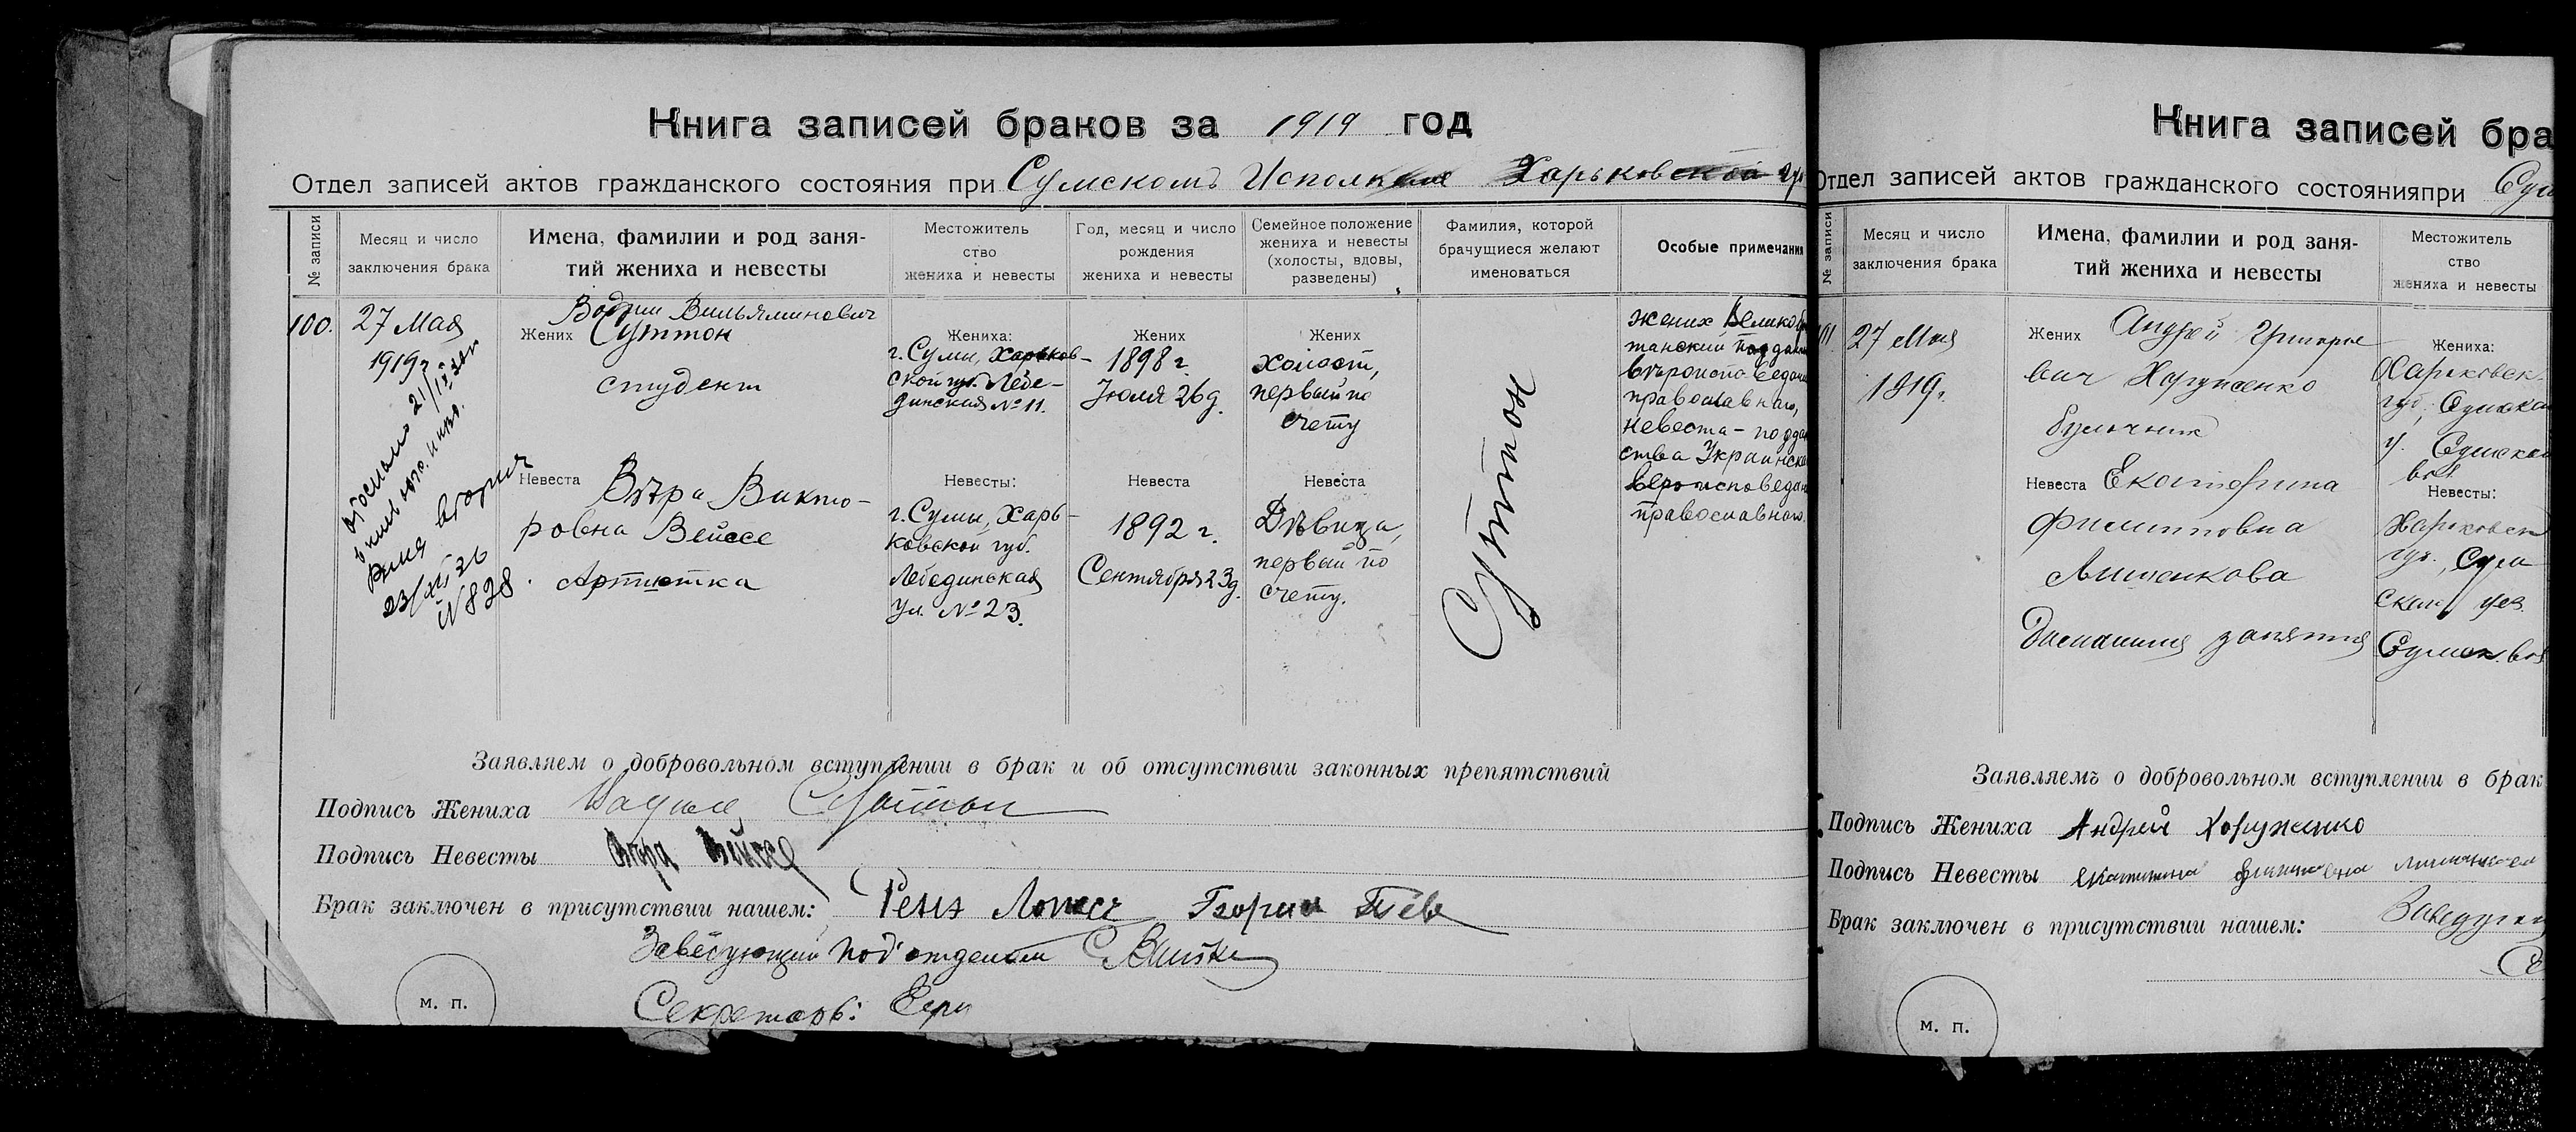 Книга записей браков за 1919 год
Отдел записей актов гражданского состояния при Сумскомъ Исполкоме Харьковской
№ записи
Месяц и число
заключения брака
Имена, фамилии и род заня-
тий жениха и невесты
Местожитель
ство
жениха и невесты
Год, месяц и число
рождения
жениха и невесты
Семейное положение
жениха и невесты
(холосты, вдовы,
разведены)
Фамилия, которой
брачущиеся желают
именоваться
Особые примечания
100.
27 Мая
1919г
21/
23/XII 26
№ 828
Вильяминович
Жених Суттон
студент
Невеста Вѣра Викто-
ровна Вейссе
Артистка
Жениха:
г. Сумы, Харьков-
ской губ. Лебе-
динская № 11.
Невесты:
г. Сумы, Харь-
ковской губ.
Лебединская
ул. № 23.
Жених
1898 г.
Июля 26 д.
Невеста
1892 г.
Сентября 23 д.
Жених
Холост,
первый по
счету
Невеста
Дѣвица,
первый по
счету.
Суттон
жених Великобри
танский поддан
вѣроисповедан
православнаго,
Невеста - поддан
ства Украинска
вероисповедан
православнаго.
Заявляем о добровольном вступлении в брак и об отсутствии законных препятствий
Подпись Жениха Суттон
Подпись Невесты Вѣра Вейссе
Брак заключен в присутствии нашем:
Заведующий подотделом
Секретарь:
м. п.
Книга записей бра
Отдел записей актов гражданского состояния при Сум
№ записи
Месяц и число
заключения брака
Имена, фамилии и род заня-
тий жениха и невесты
Местожитель
ство
жениха и невесты
27 Мая
1919г.
Жених Андрей Григорье
вич Хоруженко
булочник
Невеста Екатерина
Филипповна
Домашния занятия
Жениха:
Харьковск.
губ., Сумска
у. Сумской
вол.
Невесты:
Харьковск
губ., Сум
ском уез.
Сумск. вол
Заявляемъ о добровольном вступлении в брак
Подпись Жениха Андрей Хоруженко
Подпись Невесты Екатерина Филиповна
Брак заключен в присутствии нашем:
Заведующ
м. п.